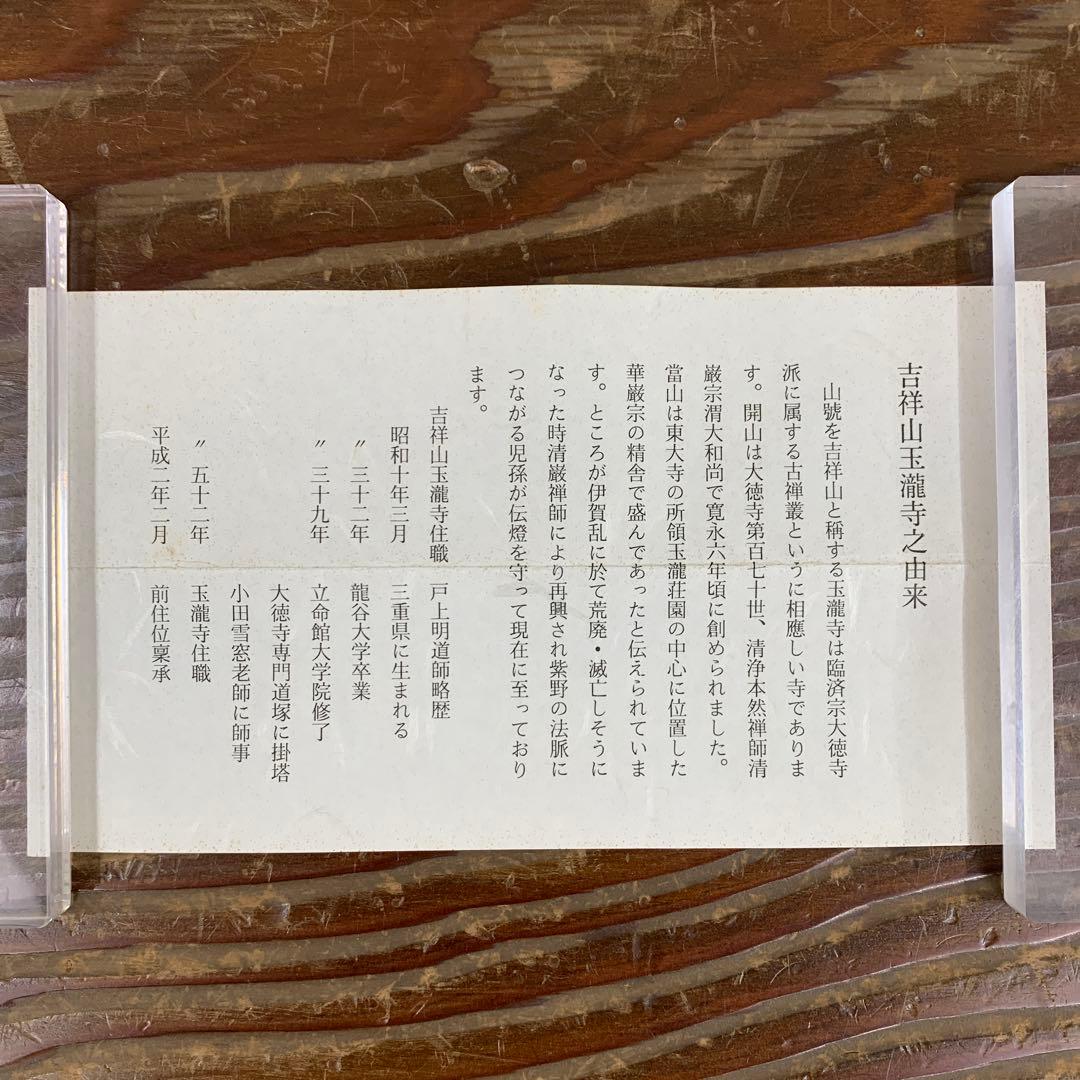 吉祥山玉瀧寺之由来
山號を吉祥山と稱する玉瀧寺は臨済宗大徳寺
派に属する古禅叢というに相應しい寺でありま
す。開山は大徳寺第百七十世、清浄本然禅師清
巌宗渭大和尚で寛永六年頃に創められました。
當山は東大寺の所領玉瀧荘園の中心に位置した
華厳宗の精舎で盛んであったと伝えられていま
す。ところが伊賀乱に於て荒廃・滅亡しそうに
なった時清巌禅師により再興され紫野の法脈に
つながる児孫が伝燈を守って現在に至っており
ます。
吉祥山玉瀧寺住職　戸上明道師略歴
昭和十年三月　三重県に生まれる
〃　三十二年　龍谷大学卒業
〃　三十九年　立命館大学院修了
大徳寺専門道塚に掛塔
小田雪窓老師に師事
〃　五十二年　玉瀧寺住職
平成二年二月　前住位稟承